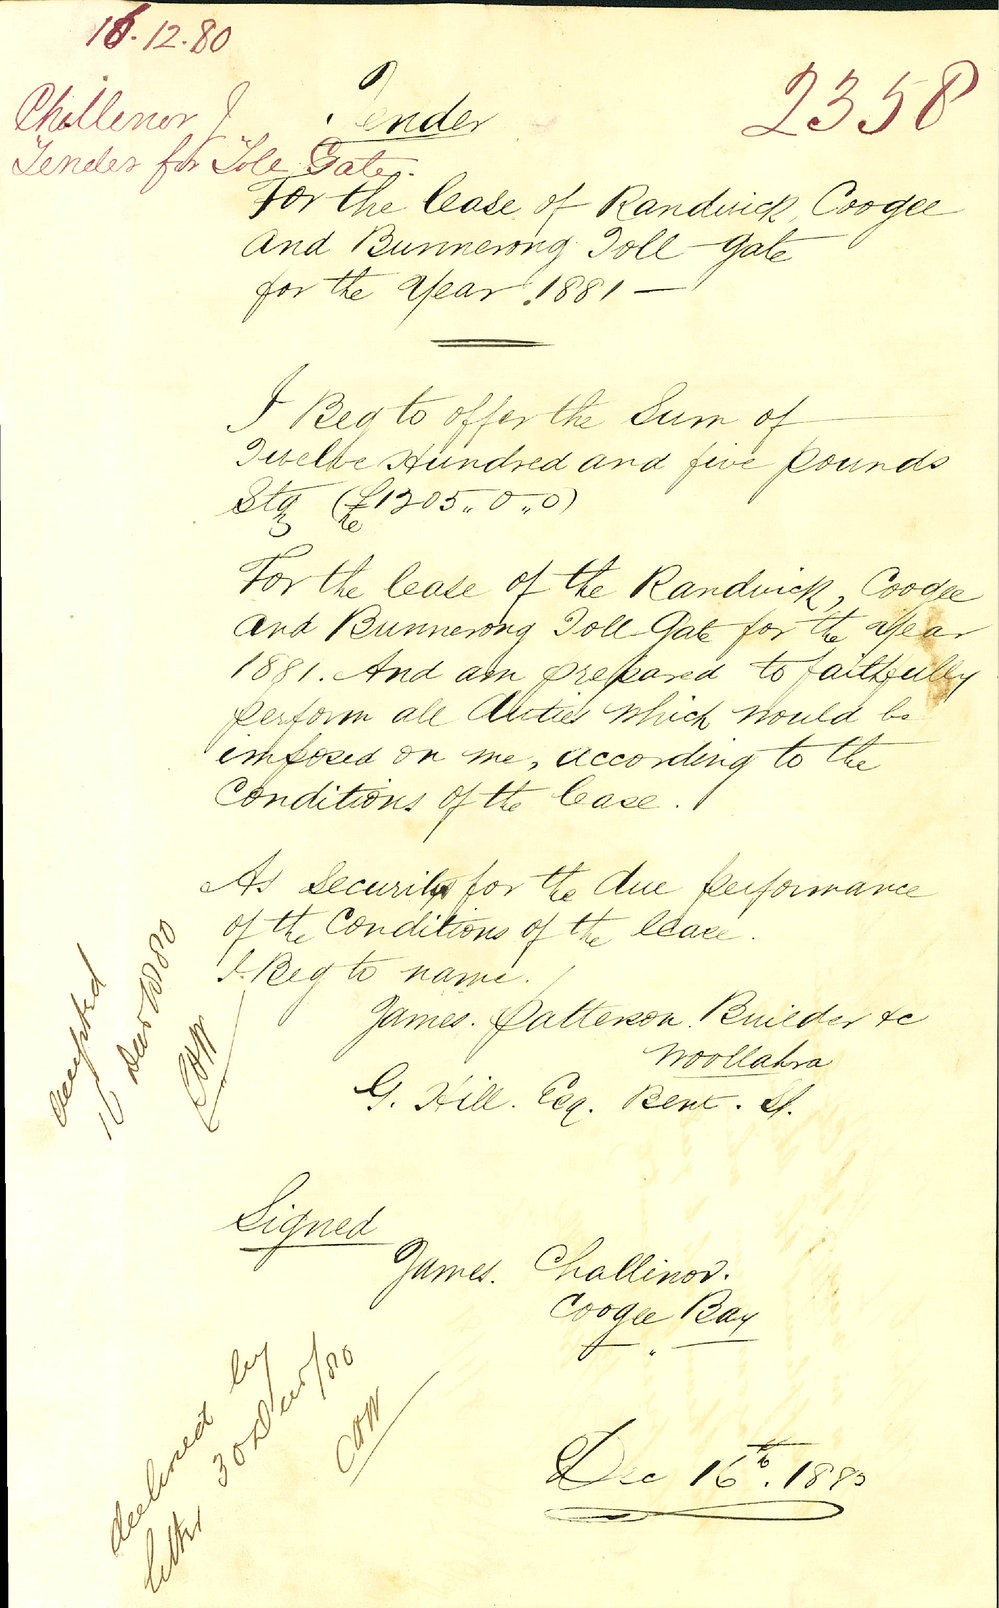 16.12.80
2358
Chillenor J
Tender for Tole Gate.
Tender
For the lease of Randwick, Coogee
and Bunnerong Toll-Gate
for the Year 1881 —
I Beg to offer the Sum of
Twelve Hundred and five pounds
Stg (£1205,, 0,, 0)
For the lease of the Randwick, Coogee
and Bunnerong Toll-Gate for the Year
1881. And am prepared to faithfully
perform all duties which would be
imposed on me, according to the
Conditions of the lease.
As Security for the due performance
of the Conditions of the lease.
I Beg to name.
James. Patterson. Builder &c
Woollahra
G. Hill. Esq. Bent. St.
accepted
16 Decr 1880
COW
Signed
James. Challinor.
Coogee Bay
declined by
letter 30 Decr/80
COW
Dec 16th. 1880